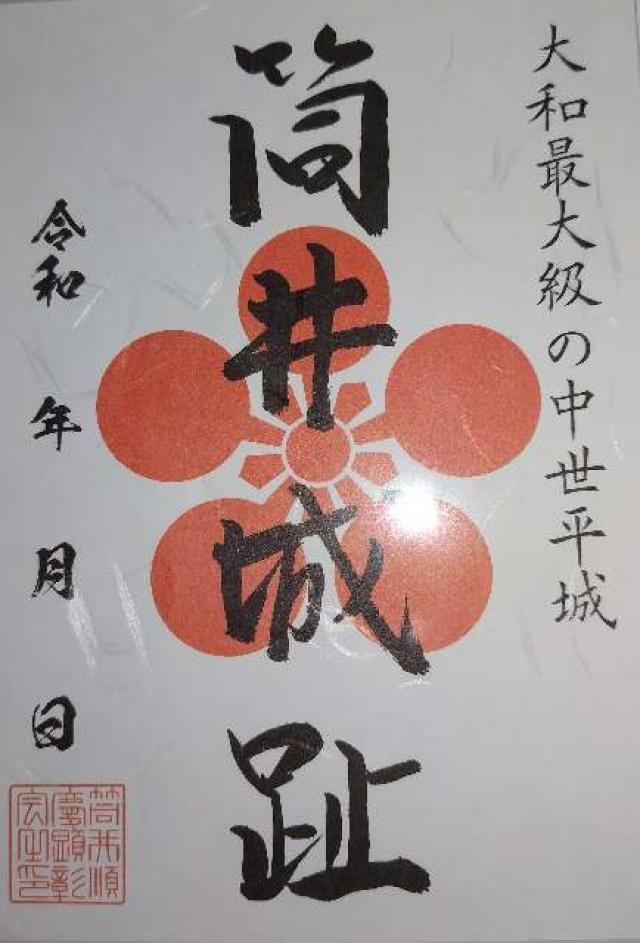 大和最大級の中世平城
筒井城趾
令和 年 月 日
筒井順
慶顕彰
会之印